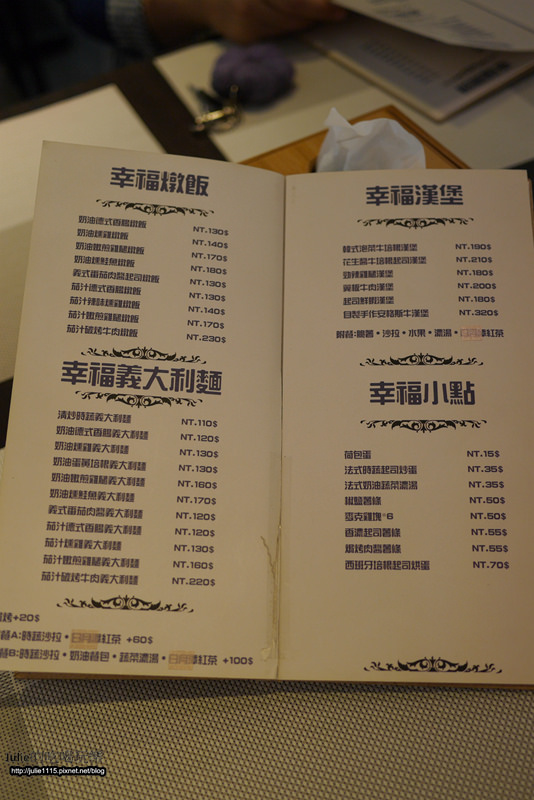 幸福燉飯
奶油德式香腸燉飯 NT.130$
奶油燻雞燉飯 NT.140$
奶油嫩煎雞腿燉飯 NT.170$
奶油燻鮭魚燉飯 NT.180$
義式番茄肉醬起司燉飯 NT.130$
茄汁德式香腸燉飯 NT.130$
茄汁辣味燻雞燉飯 NT.140$
茄汁嫩煎雞腿燉飯 NT.170$
茄汁碳烤牛肉燉飯 NT.230$
幸福義大利麵
清炒時蔬義大利麵 NT.110$
奶油德式香腸義大利麵 NT.120$
奶油燻雞義大利麵 NT.130$
奶油蛋黃培根義大利麵 NT.130$
奶油嫩煎雞腿義大利麵 NT.160$
奶油燻鮭魚義大利麵 NT.170$
義式番茄肉醬義大利麵 NT.120$
茄汁德式香腸義大利麵 NT.120$
茄汁燻雞義大利麵 NT.130$
茄汁嫩煎雞腿義大利麵 NT.160$
茄汁碳烤牛肉義大利麵 NT.220$
烤+20$
餐A:時蔬沙拉・紅茶 +60$
餐B:時蔬沙拉・奶油餐包・蔬菜濃湯・紅茶 +100$
幸福漢堡
韓式泡菜牛培根漢堡 NT.190$
花生醬牛培根起司漢堡 NT.210$
勁辣雞腿漢堡 NT.180$
厚橫牛肉漢堡 NT.200$
起司鮮蝦漢堡 NT.180$
自製手作安格斯牛漢堡 NT.320$
附餐:脆薯・沙拉・水果・濃湯・紅茶
幸福小點
荷包蛋 NT.15$
法式時蔬起司炒蛋 NT.35$
法式奶油蔬菜濃湯 NT.35$
椒鹽薯條 NT.50$
麥克雞塊*6 NT.50$
香濃起司薯條 NT.55$
焗烤肉醬薯條 NT.55$
西班牙培根起司烘蛋 NT.70$
Julie
http://julie1115.pixnet.net/blog